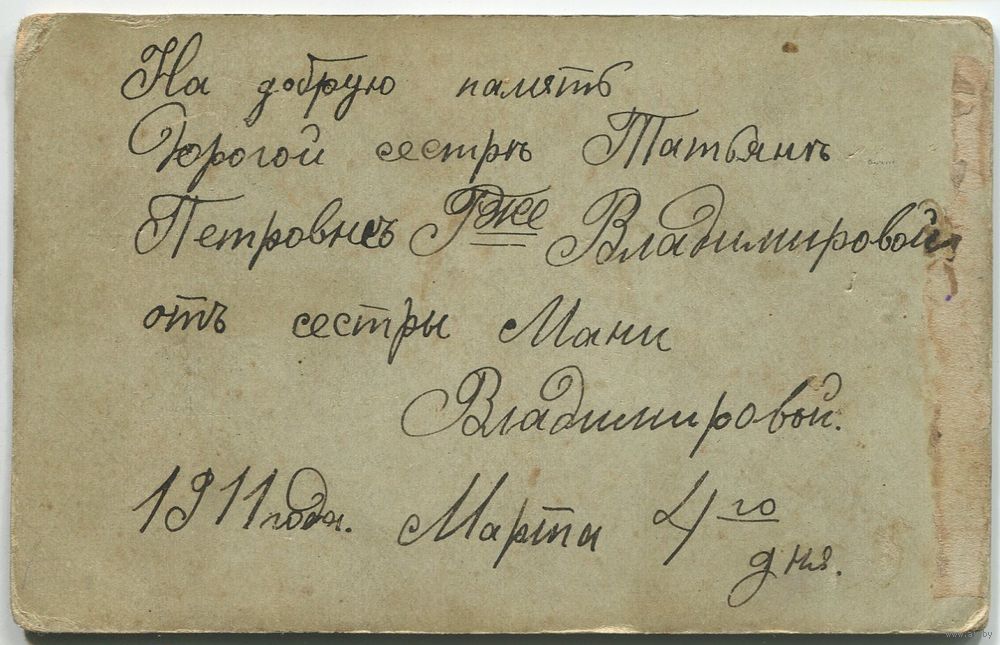 На добрую память
Дорогой сестрѣ Татьянѣ
Петровнѣ Рже Владимировой
отъ сестры Мани
Владимировой.
1911 года. Марта 4 го
дня.